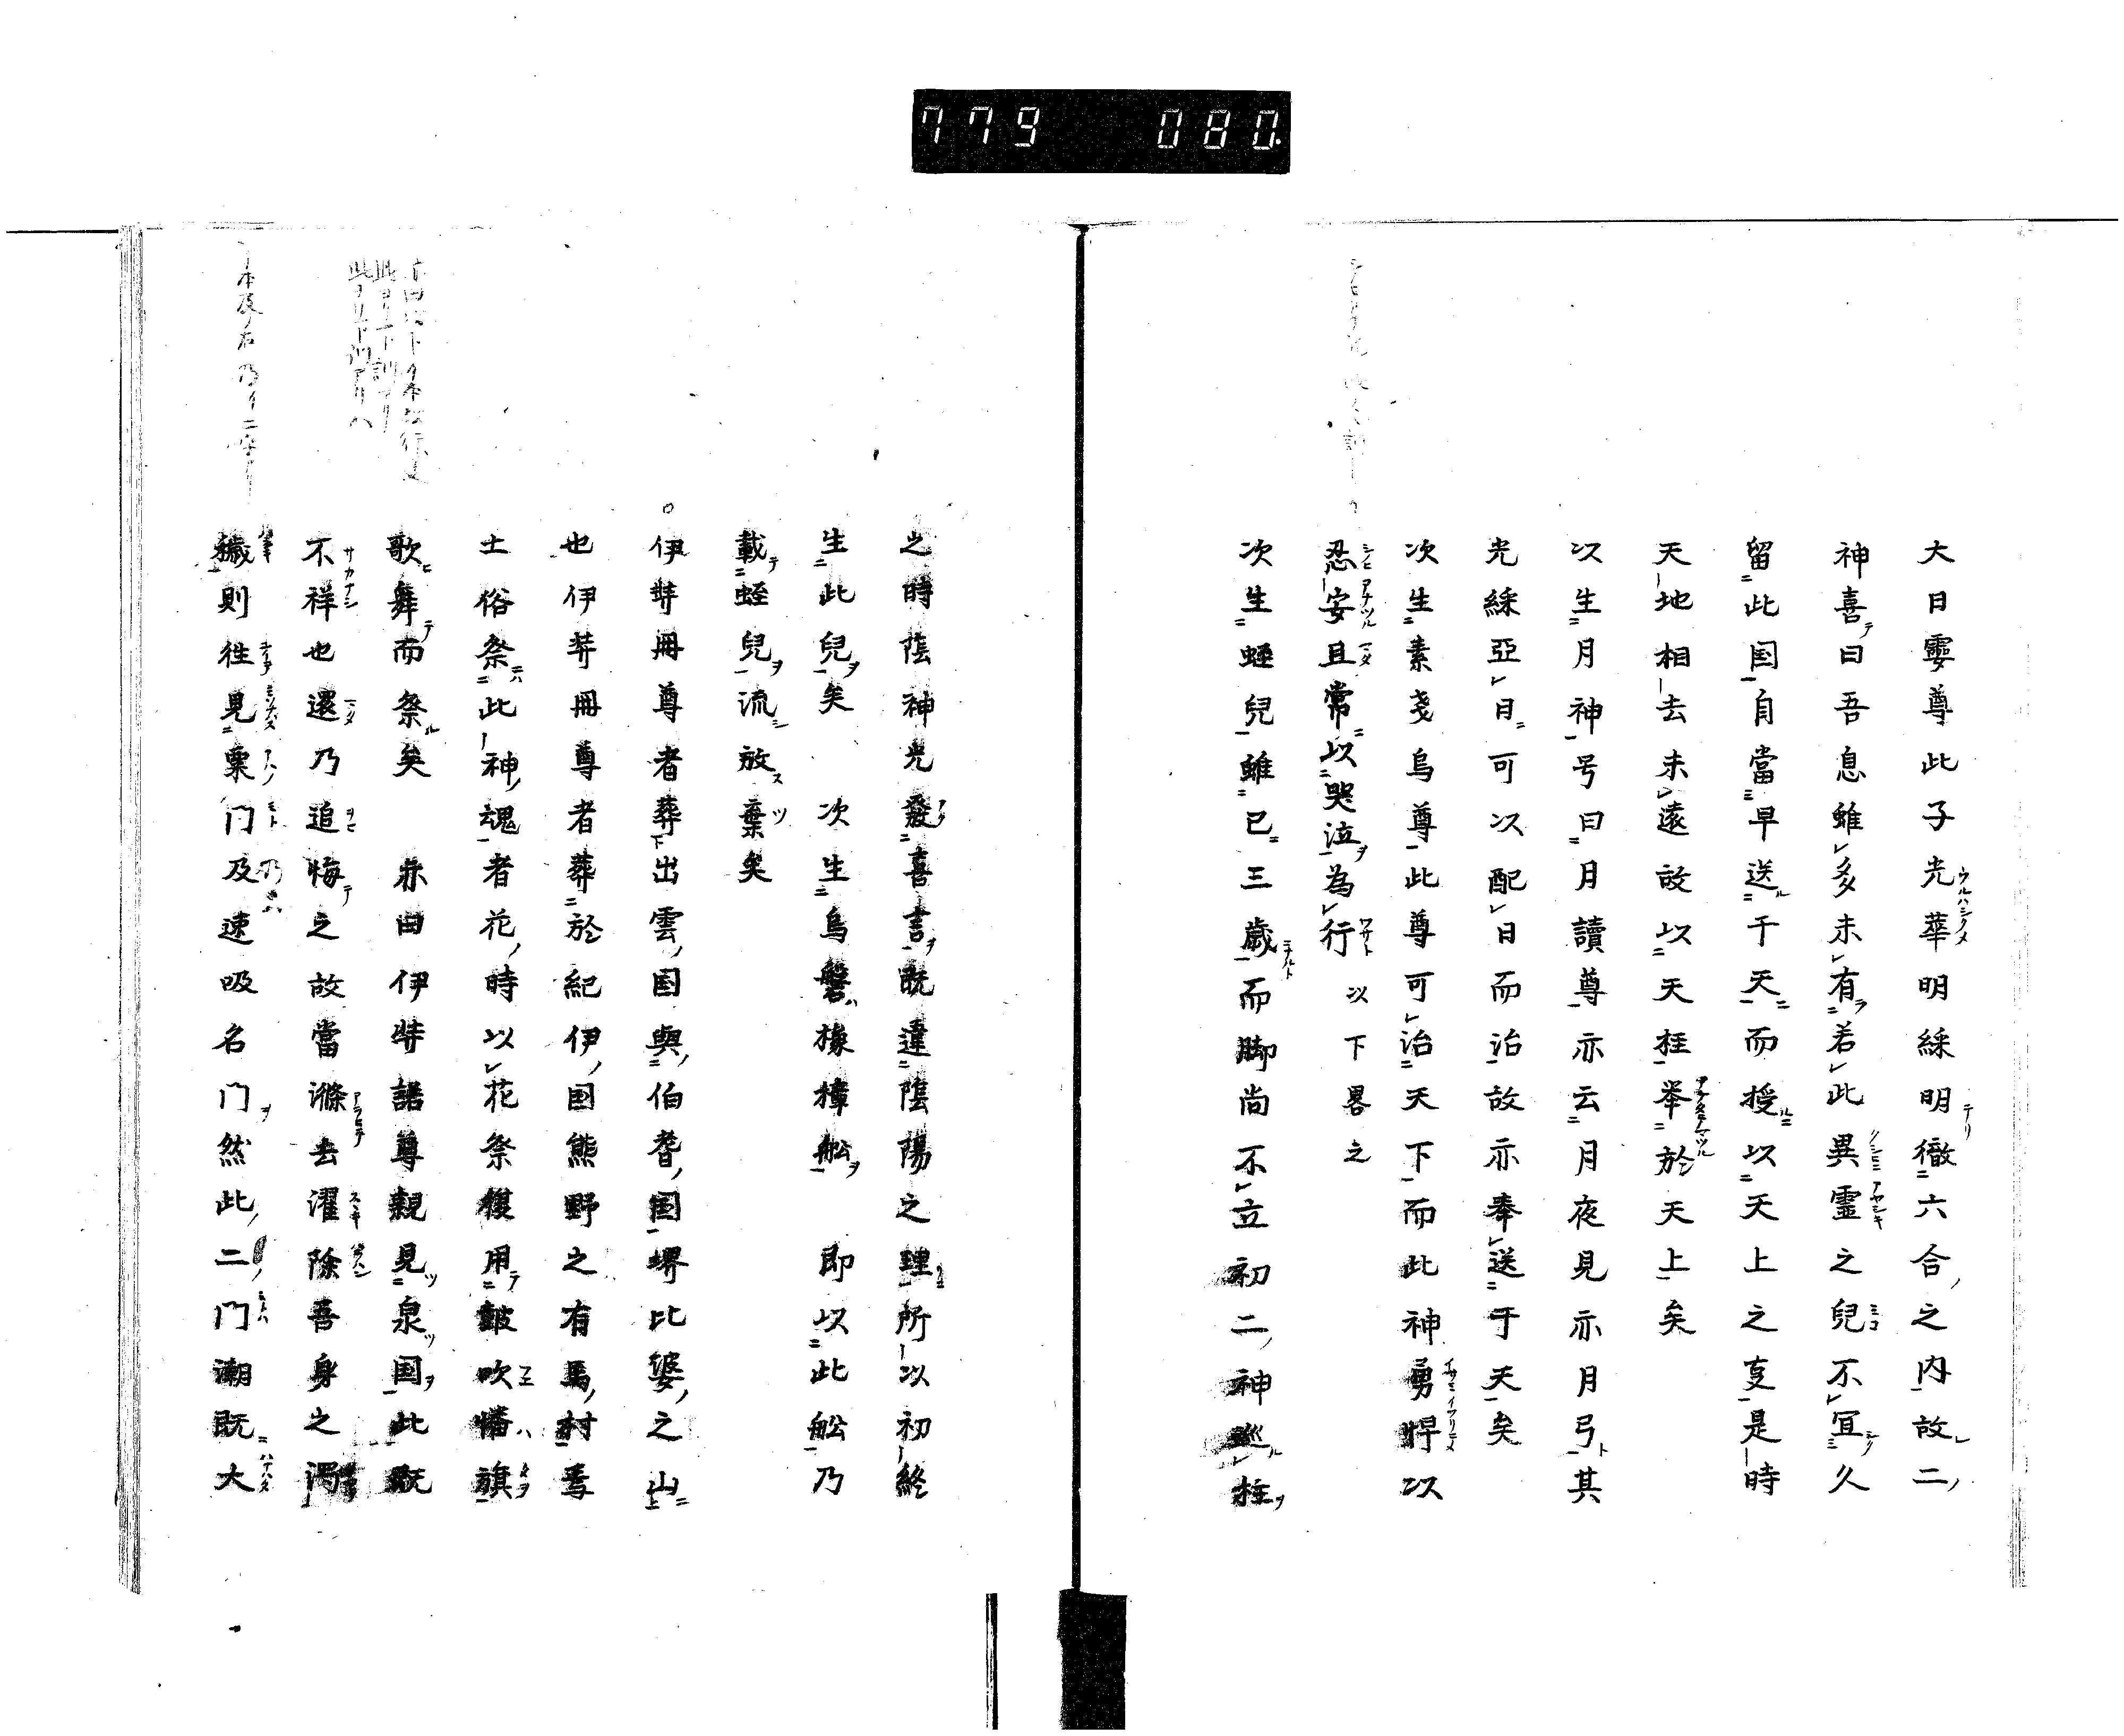 779 080.
大日孁尊此子光華明綵明徹六合之内故二
神喜曰吾息雖多未有若此異霊之兒不宜久
留此国自當早送于天而授以天上之㕝是時
天地相去未遠故以天柱挙於天上矣
次生月神号曰月讀尊亦云月夜見亦月弓其
光綵亞日可以配日而治故亦奉送于天矣
次生素戔烏尊此尊可治天下而此神勇悍以
忍安且常以哭泣為行 以下畧之
次生蛭兒雖已三歳而脚尚不立初二神巡柱
之時陰神先發喜言既違陰陽之理所以初終
生此兒矣 次生鳥磐櫲樟舩 即以此舩乃
載蛭兒流放棄矣
伊弉冊尊者葬出雲国與伯耆国堺比婆之山
也伊弉冊尊者葬於紀伊国熊野之有馬村焉
土俗祭此神魂者花時以花祭復用鼓吹幡旗
歌舞而祭矣 亦曰伊弉諾尊親見泉国此既
不祥也還乃追悔之故當滌去濯除吾身之濁
穢則往見粟门及速吸名门然此二门潮既大